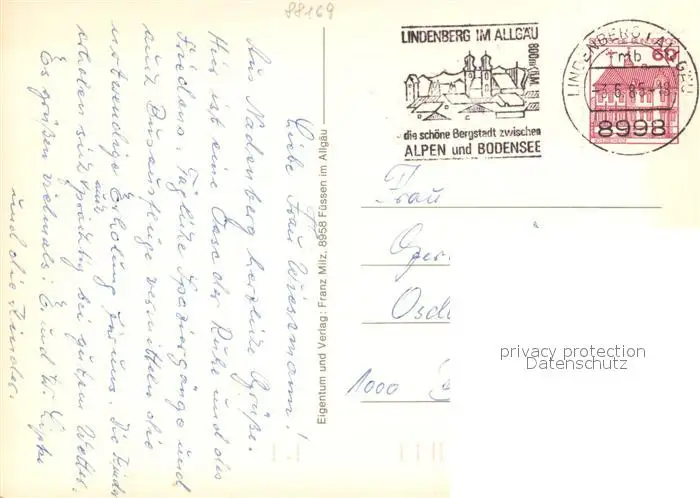 88169
LINDENBERG IM ALLGÄU
800m ü.M.
die schöne Bergstadt zwischen
ALPEN und BODENSEE
LINDENBERG I. ALLGÄU
60
mb
-3.6.85-19
8998
Liebe Frau Wiesemann!
Aus Nadenberg herzliche Grüße.
Hier ist eine Oase der Ruhe und des
Friedens. Tägliche Spaziergänge und
auch Busausflüge vermitteln die
notwendige Erholung für uns. Die Kinder
auch
erholen sich prächtig bei gutem Wetter.
Es grüßen vielmals: E. und W.
und die Kinder.
Eigentum und Verlag: Franz Milz, 8958 Füssen im Allgäu
Frau
1000
privacy protection
Datenschutz